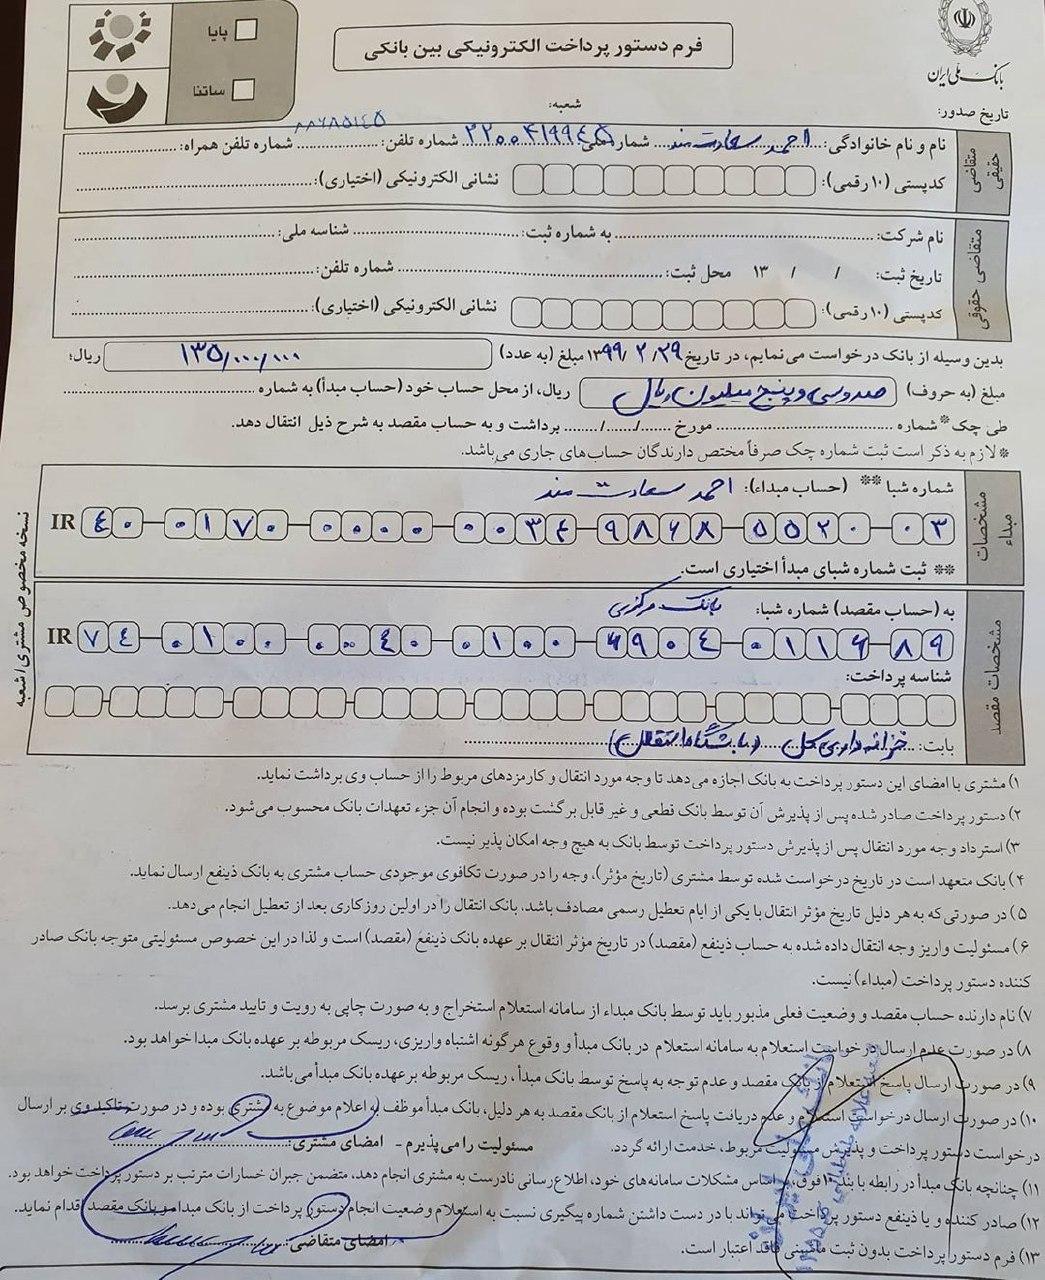 بانک ملی ایران
فرم دستور پرداخت الکترونیکی بین بانکی
پایا
ساتنا
شعبه:
تاریخ صدور:
متقاضی حقیقی
نام و نام خانوادگی: احمد سعادت مند شماره ملی شماره تلفن: شماره تلفن همراه:
کدپستی (۱۰ رقمی): نشانی الکترونیکی (اختیاری):
متقاضی حقوقی
نام شرکت: به شماره ثبت: شناسه ملی:
تاریخ ثبت: / / ۱۳ محل ثبت: شماره تلفن:
کدپستی (۱۰ رقمی): نشانی الکترونیکی (اختیاری):
بدین وسیله از بانک درخواست می‌نمایم، در تاریخ ۱۳۹۹/۲/۲۹ مبلغ (به عدد) ۱۳۵/۰۰۰/۰۰۰ ریال؛
مبلغ (به حروف) صد و سی و پنج میلیون ریال ریال، از محل حساب خود (حساب مبدأ) به شماره
طی چک* شماره مورخ / / برداشت و به حساب مقصد به شرح ذیل انتقال دهد.
* لازم به ذکر است ثبت شماره چک صرفاً مختص دارندگان حساب‌های جاری می‌باشد.
مشخصات مبداء
شماره شبا ** (حساب مبداء): احمد سعادت مند
IR ۴۰ ۰۱۷۰ ۰۰۰۰ ۰۰۳۴ ۹۸۶۸ ۵۵۲۰ ۰۳
** ثبت شماره شبای مبدأ اختیاری است.
مشخصات مقصد
به (حساب مقصد) شماره شبا: بانک مرکزی
IR ۷۴ ۰۱۰۰ ۰۰۴۰ ۰۱۰۰ ۶۹۰۴ ۰۱۱۶ ۸۹
شناسه پرداخت:
بابت: خزانه داری کل (باشگاه استقلال)
نسخه مخصوص مشتری / شعبه
۱) مشتری با امضای این دستور پرداخت به بانک اجازه می‌دهد تا وجه مورد انتقال و کارمزدهای مربوط را از حساب وی برداشت نماید.
۲) دستور پرداخت صادر شده پس از پذیرش آن توسط بانک قطعی و غیر قابل برگشت بوده و انجام آن جزء تعهدات بانک محسوب می‌شود.
۳) استرداد وجه مورد انتقال پس از پذیرش دستور پرداخت توسط بانک به هیچ وجه امکان پذیر نیست.
۴) بانک متعهد است در تاریخ درخواست شده توسط مشتری (تاریخ مؤثر)، وجه را در صورت تکافوی موجودی حساب مشتری به بانک ذینفع ارسال نماید.
۵) در صورتی که به هر دلیل تاریخ مؤثر انتقال با یکی از ایام تعطیل رسمی مصادف باشد. بانک انتقال را در اولین روزکاری بعد از تعطیل انجام می‌دهد.
۶) مسئولیت واریز وجه انتقال داده شده به حساب ذینفع (مقصد) در تاریخ مؤثر انتقال بر عهده بانک ذینفع (مقصد) است و لذا در این خصوص مسئولیتی متوجه بانک صادر
کننده دستور پرداخت (مبداء) نیست.
۷) نام دارنده حساب مقصد و وضعیت فعلی مذبور باید توسط بانک مبداء از سامانه استعلام استخراج و به صورت چاپی به رویت و تایید مشتری برسد.
۸) در صورت عدم ارسال درخواست استعلام به سامانه استعلام در بانک مبدأ و وقوع هرگونه اشتباه واریزی، ریسک مربوطه بر عهده بانک مبدا خواهد بود.
۹) در صورت ارسال پاسخ استعلام از بانک مقصد و عدم توجه به پاسخ توسط بانک مبدأ، ریسک مربوطه بر عهده بانک مبدأ می‌باشد.
۱۰) در صورت ارسال درخواست استعلام و عدم دریافت پاسخ استعلام از بانک مقصد به هر دلیل، بانک مبدأ موظف به اعلام موضوع به مشتری بوده و در صورت تاکید وی بر ارسال
درخواست دستور پرداخت و پذیرش مسئولیت مربوط، خدمت ارائه گردد. مسئولیت را می‌پذیرم - امضای مشتری:
۱۱) چنانچه بانک مبدأ در رابطه با بند ۱۰ فوق، بر اساس مشکلات سامانه‌های خود، اطلاع رسانی نادرست به مشتری انجام دهد، متضمن جبران خسارات مترتب بر دستور پرداخت خواهد بود.
۱۲) صادر کننده و یا ذینفع دستور پرداخت می‌تواند با در دست داشتن شماره پیگیری نسبت به استعلام وضعیت انجام دستور پرداخت از بانک مبدا و بانک مقصد اقدام نماید.
۱۳) فرم دستور پرداخت بدون ثبت ماشینی فاقد اعتبار است. امضای متقاضی: